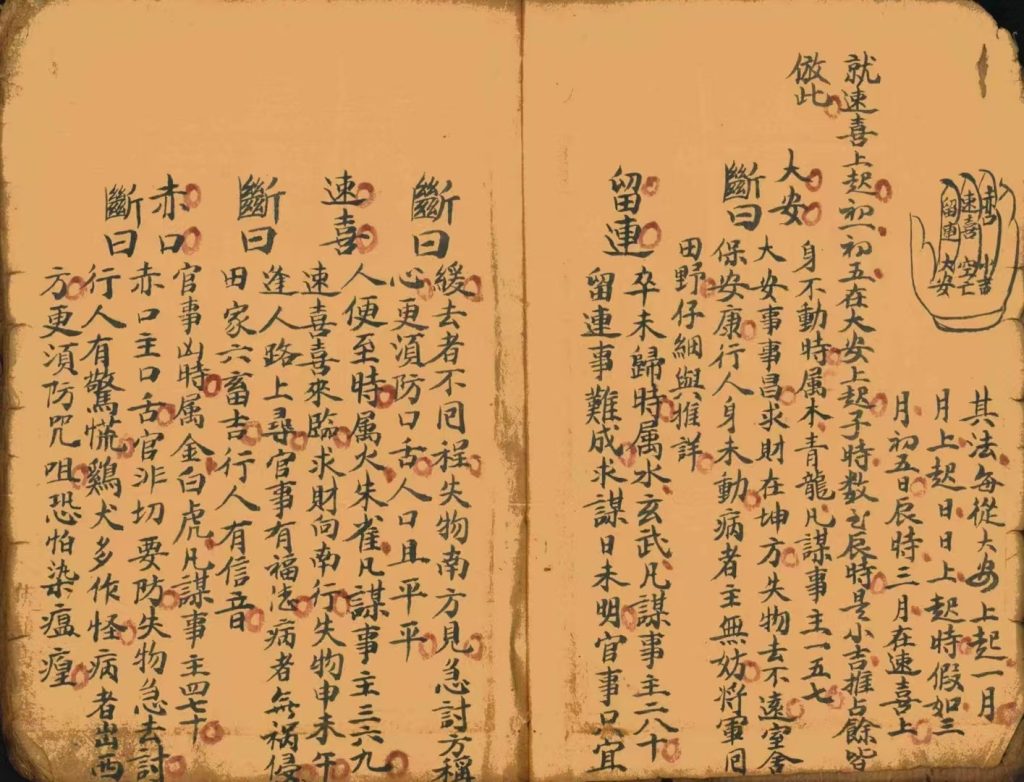 赤口 小吉
速喜 空亡
留連 大安
其法每從大安上起一月
月上起日日上起時假如三
月初五日辰時三月在速喜上
就速喜上起初一初五在大安上起子時数至辰時是小吉推占餘皆
倣此
大安
身不動時属木青龍凡謀事主一五七
大安事事昌求財在坤方失物去不遠室舍
斷曰
保安康行人身未動病者主無妨將軍囘
田野仔細與推詳
留連
卒未歸時属水亥武凡謀事主二八十
留連事難成求謀日未明官事只宜
斷曰
緩去者不囘程失物南方見急討方稱
心更須防口舌人口且平平
速喜
人便至時属火朱雀凡謀事主三六九
速喜喜來臨求財向南行失物申未午
斷曰
逢人路上尋官事有福法病者無祸侵
田家六畜吉行人有信音
赤口
官事凶時属金白虎凡謀事主四七十
赤口主口舌官非切要防失物急去討
斷曰
行人有驚慌鷄犬多作怪病者出西
方更須防咒咀恐怕染瘟